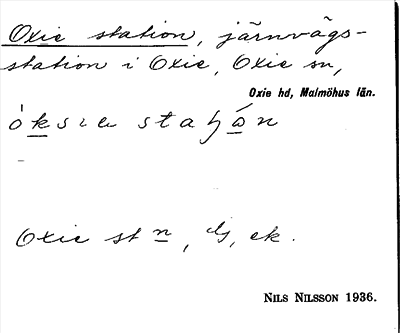 Oxie station, järnvägs-
station i Oxie, Oxie sn,
Oxie hd, Malmöhus län.
Oxie st n, dj, ek.
NILS NILSSON 1936.